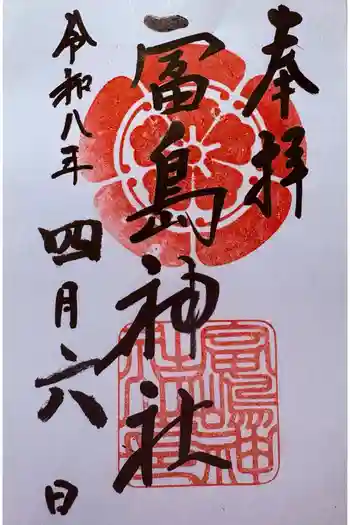 奉拝
冨島神社
令和八年
四月六日
冨嶋神社印